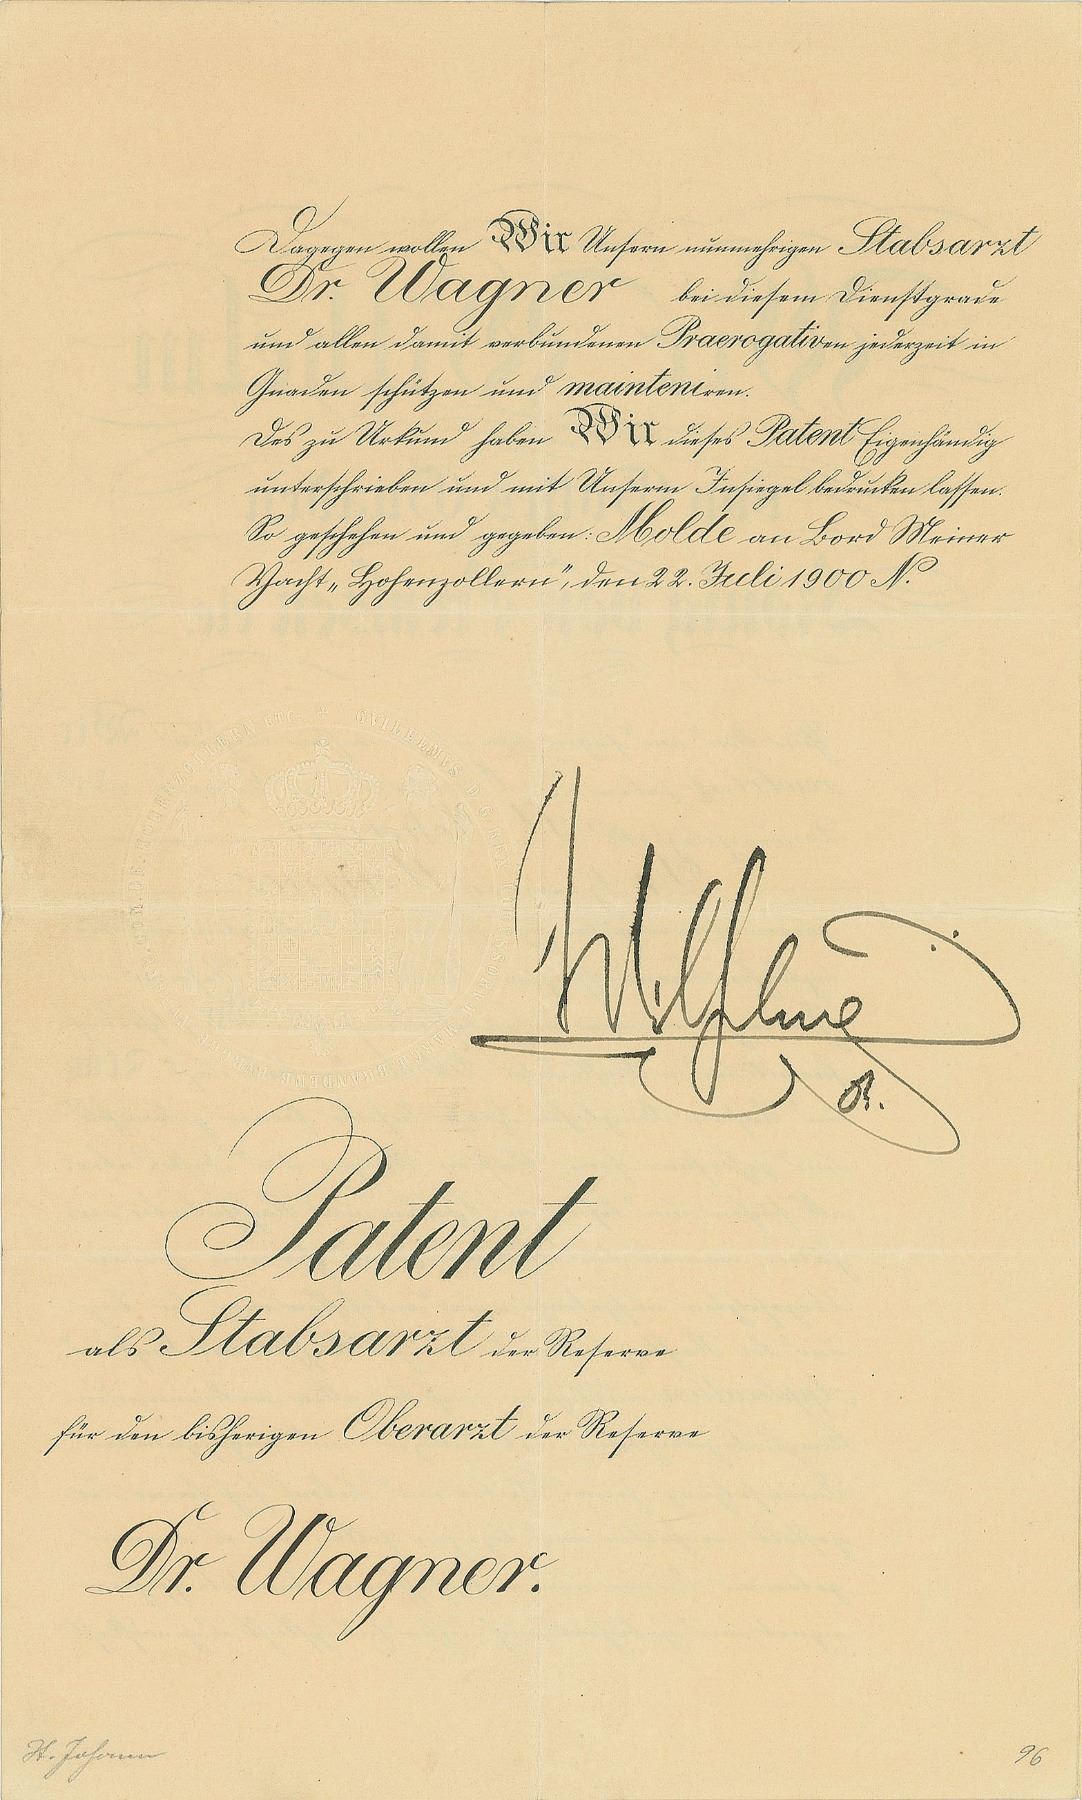 Dagegen wollen Wir Unsern nunmehrigen Stabsarzt
Dr. Wagner bei diesem Dienstgrade
und allen damit verbundenen Praerogativen jederzeit in
Gnaden schützen und mainteniren.
Des zu Urkund haben Wir dieses Patent Eigenhändig
unterschrieben und mit Unserm Insiegel bedrucken lassen.
So geschehen und gegeben: Molde an Bord Meiner
Yacht „Hohenzollern“, den 22. Juli 1900 N.
Wilhelm
R.
Patent
als Stabsarzt der Reserve
für den bisherigen Oberarzt der Reserve
Dr. Wagner.
St. Johann
96